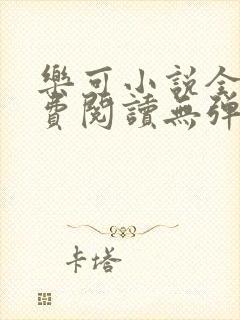 樂可小說全
費閱讀無彈
卡塔